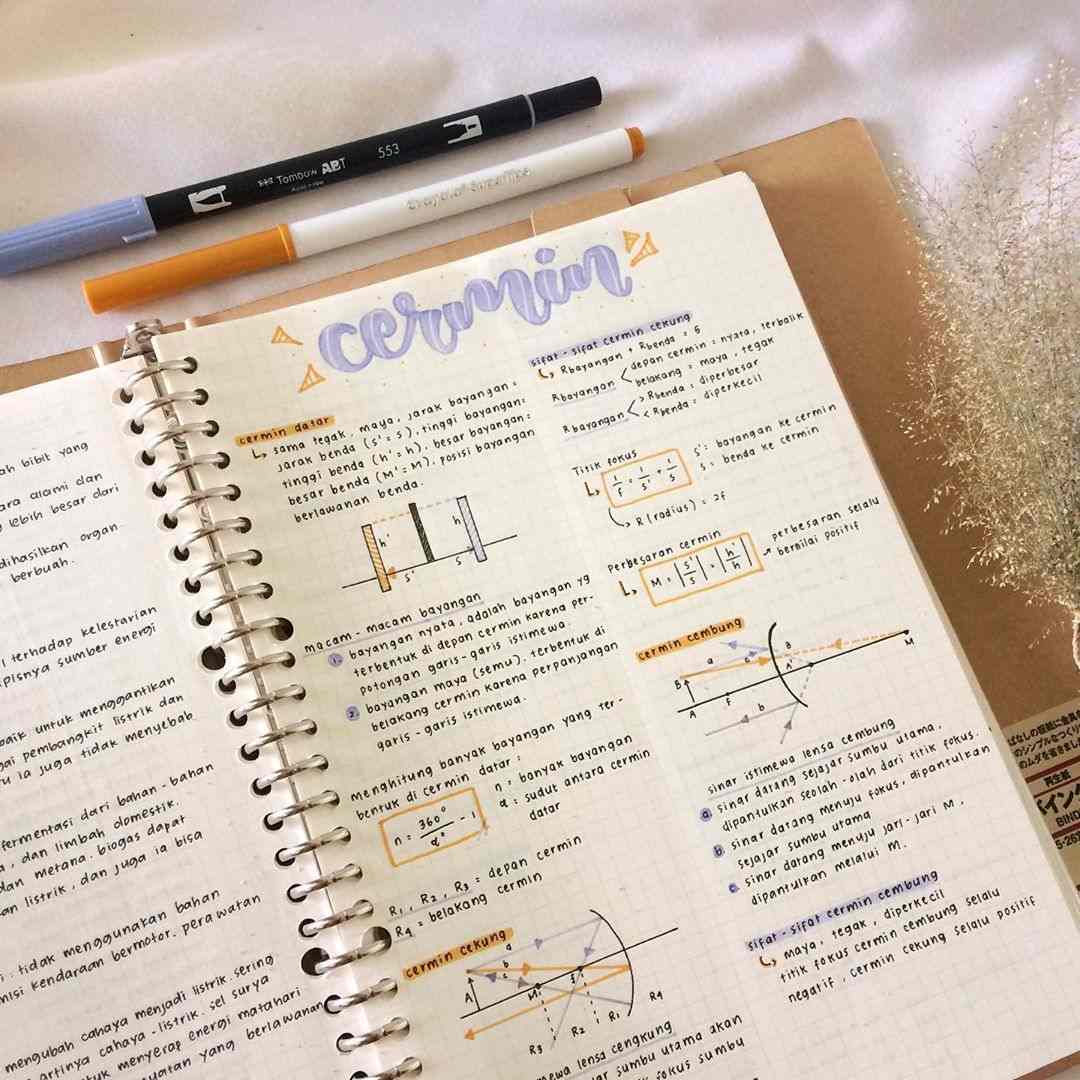 TOMBOW ABT 553
cermin
cermin datar
↳ sama tegak, maya, jarak bayangan =
jarak benda (s' = s), tinggi bayangan =
tinggi benda (h' = h), besar bayangan =
besar benda (M' = M), posisi bayangan
berlawanan benda.
h'
h
s'
s
macam - macam bayangan
1. bayangan nyata, adalah bayangan yg
terbentuk di depan cermin karena per-
potongan garis-garis istimewa.
2. bayangan maya (semu), terbentuk di
belakang cermin karena perpanjangan
garis-garis istimewa.
menghitung banyak bayangan yang ter-
bentuk di cermin datar :
n = 360° / α° - 1
n = banyak bayangan
α = sudut antara cermin
datar
R1, R2, R3 = depan cermin
R4 = belakang cermin
cermin cekung
a
b
c
A
M
f
R4
R1
R2
R3
mewa lensa cengkung
jar sumbu utama akan
fokus sumbu
sifat - sifat cermin cekung
↳ Rbayangan + Rbenda = 5
Rbayangan < depan cermin : nyata, terbalik
belakang = maya, tegak
Rbayangan < > Rbenda = diperbesar
< Rbenda = diperkecil
Titik fokus
↳ 1/f = 1/s' + 1/s
s' = bayangan ke cermin
s = benda ke cermin
R (radius) = 2f
perbesaran cermin
↳ M = |s'/s| = |h'/h| → perbesaran selalu
bernilai positif
cermin cembung
B
a
c
A
F
b
B'
A'
M
sinar istimewa lensa cembung
a. sinar datang sejajar sumbu utama,
dipantulkan seolah-olah dari titik fokus.
b. sinar datang menuju fokus, dipantulkan
sejajar sumbu utama
c. sinar datang menuju jari-jari M,
dipantulkan melalui M.
sifat - sifat cermin cembung
↳ maya, tegak, diperkecil
titik fokus cermin cembung selalu
negatif, cermin cekung selalu positif
ah bibit yang
ara alami dan
lebih besar dari
dihasilkan organ
berbuah.
l terhadap kelestarian
pisnya sumber energi
baik untuk menggantikan
gai pembangkit listrik dan
u ia juga tidak menyebab.
fermentasi dari bahan-bahan
, dan limbah domestik.
dan metana. biogas dapat
an listrik, dan juga ia bisa
i. tidak menggunakan bahan
misi kendaraan bermotor, perawatan
mengubah cahaya menjadi listrik. sering
artinya cahaya-listrik. sel surya
tuk menyerap energi matahari
uatan yang berlawanan
再生紙
BIND